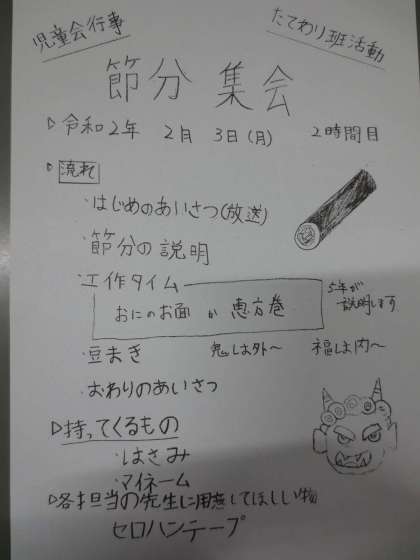 児童会行事
たてわり班活動
節分 集会
▷令和2年 2月 3日(月) 2時間目
▷流れ
・はじめのあいさつ(放送)
・節分の説明
・工作タイム
おにのお面 か 恵方巻
5年が
説明します
・豆まき 鬼は外〜 福は内〜
・おわりのあいさつ
▷持ってくるもの
・はさみ
・マイネーム
▷各担当の先生に用意してほしい物
セロハンテープ